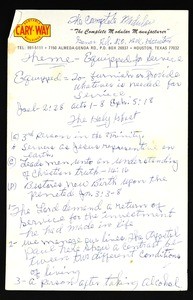 The Complete Modular
CARY-WAY
"The Complete Modular Manufacturer"
TEL. 991-6111 • 7702 ALMEDA-GENOA RD. P.O. BOX • HOUSTON, TEXAS 77032
Theme - Equipped for Service
Equipped = To furnish or provide
whatever is needed for
Service
Joel 2:28 Acts 1-8 Eph. 5:18
The Holy Spirit
3rd Person in the Trinity
Serves as Jesus representative on
earth
Leads men into an understanding
of Christian truth - 16:16
Destines new birth upon the
3:3-8
1 - The Lord demand a return of
service for the investment
He had made in life
2 - we may in lives The Apostle
Paul here shows contrast be
tween two different conditions
of living
3 - a person after taking alcohol